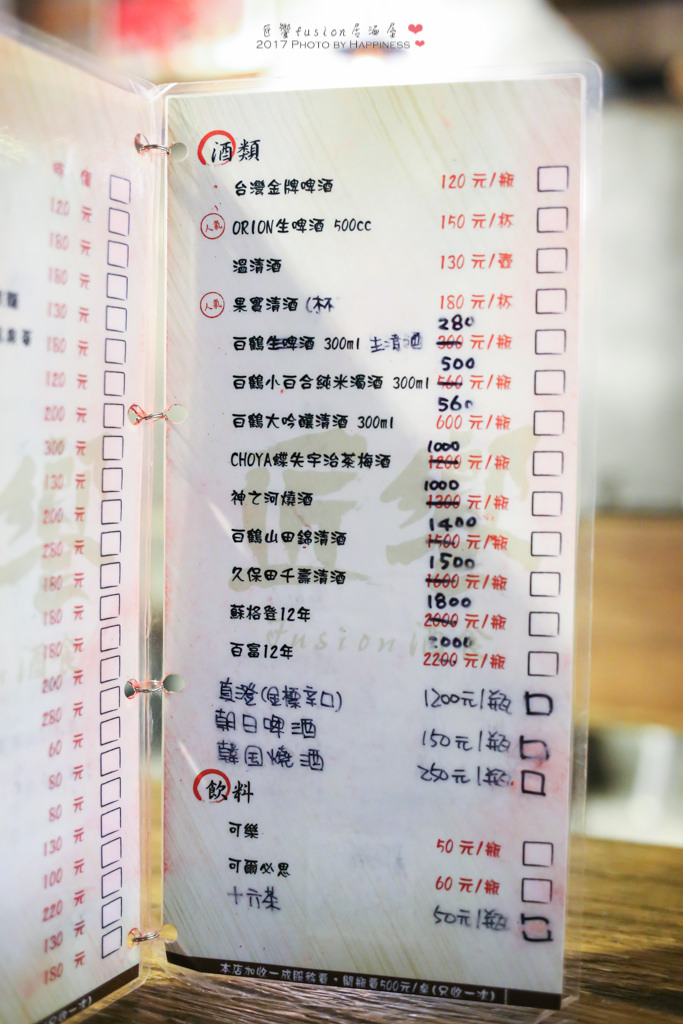 匠饗fusion居酒屋
2017 PHOTO BY HAPPINESS
價
120 元
180 元
180 元
130 元
180 元
120 元
200 元
300 元
130 元
200 元
280 元
180 元
180 元
180 元
200 元
280 元
60 元
80 元
80 元
130 元
100 元
220 元
130 元
180 元
酒類
台灣金牌啤酒 120 元/瓶
人氣 ORION生啤酒 500cc 150 元/杯
溫清酒 130 元/壺
人氣 果實清酒 (杯 180 元/杯
280
百鶴生啤酒 300ml 生清酒 300 元/瓶
500
百鶴小百合純米濁酒 300ml 560 元/瓶
560
百鶴大吟釀清酒 300ml 600 元/瓶
1000
CHOYA蝶矢宇治茶梅酒 1200 元/瓶
1000
神之河燒酒 1300 元/瓶
1400
百鶴山田錦清酒 1500 元/瓶
1500
久保田千壽清酒 1600 元/瓶
1800
蘇格登12年 2000 元/瓶
2000
百富12年 2200 元/瓶
真澄(金標辛口) 1200元/瓶
朝日啤酒 150元/瓶
韓国燒酒 250元/瓶
飲料
可樂 50 元/瓶
可爾必思 60 元/瓶
十六茶 50元/瓶
本店加收一成服務費‧開瓶費500元/支(只收一次)